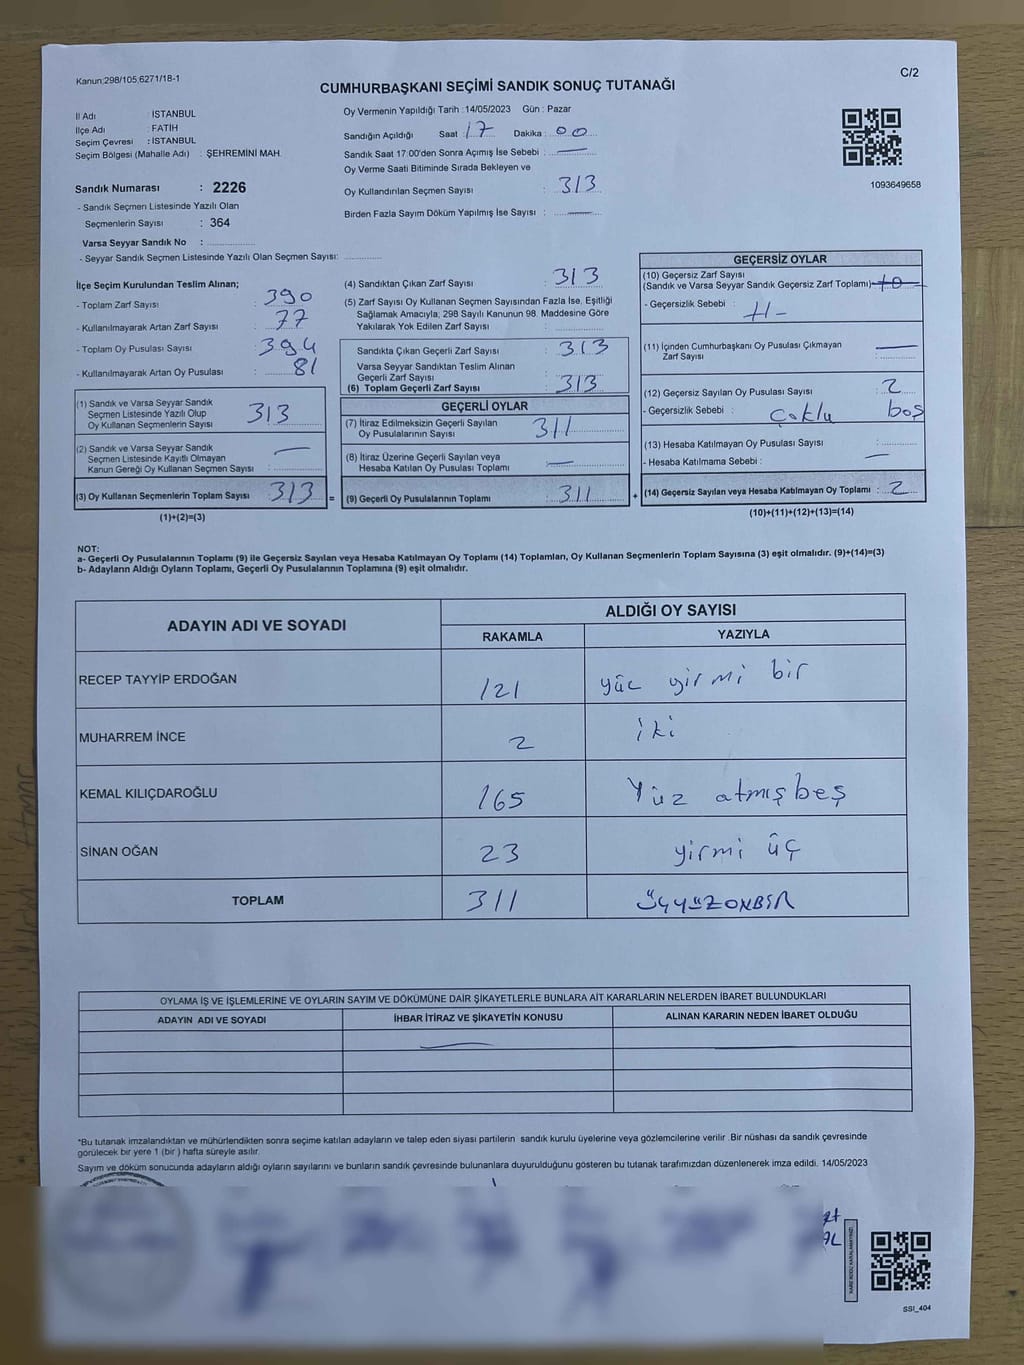 Kanun:298/105;6271/18-1
C/2
CUMHURBAŞKANI SEÇİMİ SANDIK SONUÇ TUTANAĞI
İl Adı : İSTANBUL
İlçe Adı : FATİH
Seçim Çevresi : İSTANBUL
Seçim Bölgesi (Mahalle Adı) : ŞEHREMİNİ MAH.
Sandık Numarası : 2226
- Sandık Seçmen Listesinde Yazılı Olan
Seçmenlerin Sayısı : 364
Varsa Seyyar Sandık No :
- Seyyar Sandık Seçmen Listesinde Yazılı Olan Seçmen Sayısı:
Oy Vermenin Yapıldığı Tarih : 14/05/2023 Gün : Pazar
Sandığın Açıldığı Saat : 17 Dakika : 00
Sandık Saat 17:00'den Sonra Açımış İse Sebebi : —
Oy Verme Saati Bitiminde Sırada Bekleyen ve
Oy Kullandırılan Seçmen Sayısı : 313
Birden Fazla Sayım Döküm Yapılmış İse Sayısı : —
1093649658
İlçe Seçim Kurulundan Teslim Alınan;
- Toplam Zarf Sayısı : 390
- Kullanılmayarak Artan Zarf Sayısı : 77
- Toplam Oy Pusulası Sayısı : 394
- Kullanılmayarak Artan Oy Pusulası : 81
(1) Sandık ve Varsa Seyyar Sandık
Seçmen Listesinde Yazılı Olup
Oy Kullanan Seçmenlerin Sayısı : 313
(2) Sandık ve Varsa Seyyar Sandık
Seçmen Listesinde Kayıtlı Olmayan
Kanun Gereği Oy Kullanan Seçmen Sayısı : —
(3) Oy Kullanan Seçmenlerin Toplam Sayısı : 313
(1)+(2)=(3)
=
(4) Sandıktan Çıkan Zarf Sayısı : 313
(5) Zarf Sayısı Oy Kullanan Seçmen Sayısından Fazla İse, Eşitliği
Sağlamak Amacıyla; 298 Sayılı Kanunun 98. Maddesine Göre
Yakılarak Yok Edilen Zarf Sayısı :
Sandıkta Çıkan Geçerli Zarf Sayısı : 313
Varsa Seyyar Sandıktan Teslim Alınan
Geçerli Zarf Sayısı
(6) Toplam Geçerli Zarf Sayısı : 313
GEÇERLİ OYLAR
(7) İtiraz Edilmeksizin Geçerli Sayılan
Oy Pusulalarının Sayısı : 311
(8) İtiraz Üzerine Geçerli Sayılan veya
Hesaba Katılan Oy Pusulası Toplamı : —
(9) Geçerli Oy Pusulalarının Toplamı : 311
+
GEÇERSİZ OYLAR
(10) Geçersiz Zarf Sayısı
(Sandık ve Varsa Seyyar Sandık Geçersiz Zarf Toplamı)
- Geçersizlik Sebebi :
(11) İçinden Cumhurbaşkanı Oy Pusulası Çıkmayan
Zarf Sayısı : —
(12) Geçersiz Sayılan Oy Pusulası Sayısı : 2
- Geçersizlik Sebebi : Çoklu boş
(13) Hesaba Katılmayan Oy Pusulası Sayısı :
- Hesaba Katılmama Sebebi : —
(14) Geçersiz Sayılan veya Hesaba Katılmayan Oy Toplamı : 2
(10)+(11)+(12)+(13)=(14)
NOT:
a- Geçerli Oy Pusulalarının Toplamı (9) ile Geçersiz Sayılan veya Hesaba Katılmayan Oy Toplamı (14) Toplamları, Oy Kullanan Seçmenlerin Toplam Sayısına (3) eşit olmalıdır. (9)+(14)=(3)
b- Adayların Aldığı Oyların Toplamı, Geçerli Oy Pusulalarının Toplamına (9) eşit olmalıdır.
ADAYIN ADI VE SOYADI
ALDIĞI OY SAYISI
RAKAMLA YAZIYLA
RECEP TAYYİP ERDOĞAN 121 yüz yirmi bir
MUHARREM İNCE 2 iki
KEMAL KILIÇDAROĞLU 165 Yüz atmışbeş
SİNAN OĞAN 23 yirmi üç
TOPLAM 311 ÜÇYÜZONBİR
OYLAMA İŞ VE İŞLEMLERİNE VE OYLARIN SAYIM VE DÖKÜMÜNE DAİR ŞİKAYETLERLE BUNLARA AİT KARARLARIN NELERDEN İBARET BULUNDUKLARI
ADAYIN ADI VE SOYADI İHBAR İTİRAZ VE ŞİKAYETİN KONUSU ALINAN KARARIN NEDEN İBARET OLDUĞU
*Bu tutanak imzalandıktan ve mühürlendikten sonra seçime katılan adayların ve talep eden siyasi partilerin sandık kurulu üyelerine veya gözlemcilerine verilir. Bir nüshası da sandık çevresinde
görülecek bir yere 1 (bir) hafta süreyle asılır.
Sayım ve döküm sonucunda adayların aldığı oyların sayılarını ve bunların sandık çevresinde bulunanlara duyurulduğunu gösteren bu tutanak tarafımızdan düzenlenerek imza edildi. 14/05/2023
SSI_404